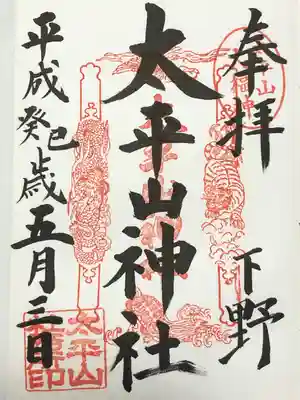 奉拝
下野
太平山神社
平成癸巳歳五月三日
太平山